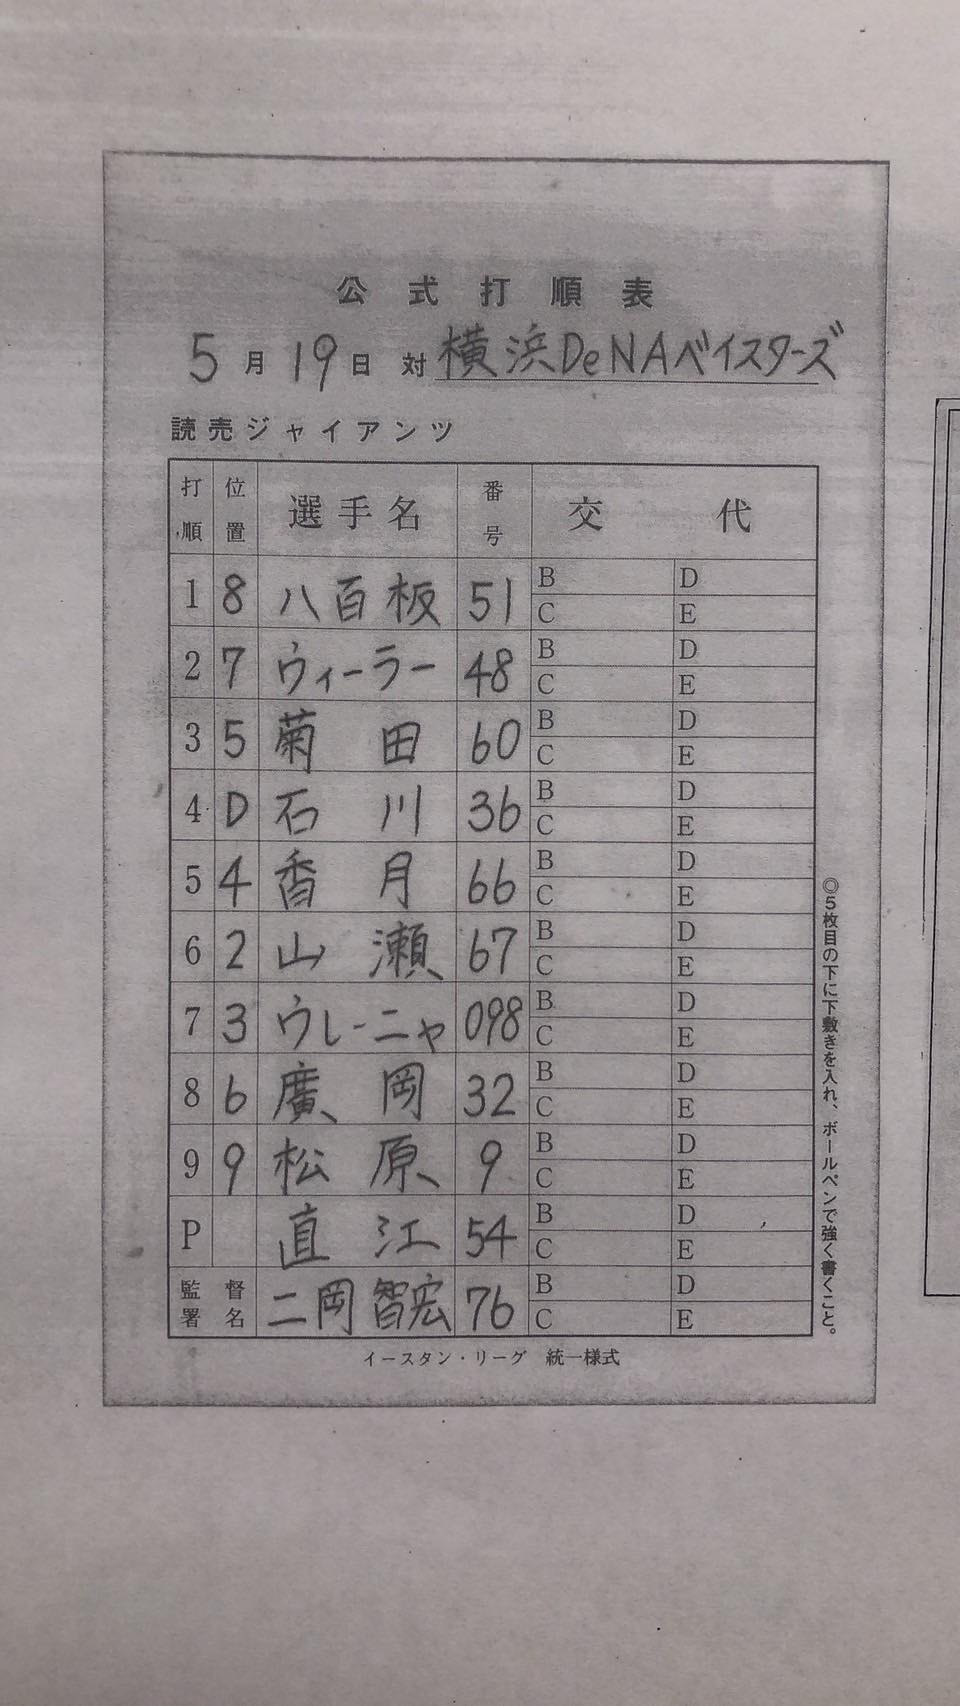 公式打順表
5月19日 対 横浜DeNAベイスターズ
読売ジャイアンツ
打順 位置 選手名 番号 交代
1 8 八百板 51 B D
C E
2 7 ウィーラー 48 B D
C E
3 5 菊田 60 B D
C E
4 D 石川 36 B D
C E
5 4 香月 66 B D
C E
6 2 山瀬 67 B D
C E
7 3 ウレーニャ 098 B D
C E
8 6 廣岡 32 B D
C E
9 9 松原 9 B D
C E
P 直江 54 B D
C E
監督署名 二岡智宏 76 B D
C E
イースタン・リーグ 統一様式
◎5枚目の下に下敷きを入れ、ボールペンで強く書くこと。